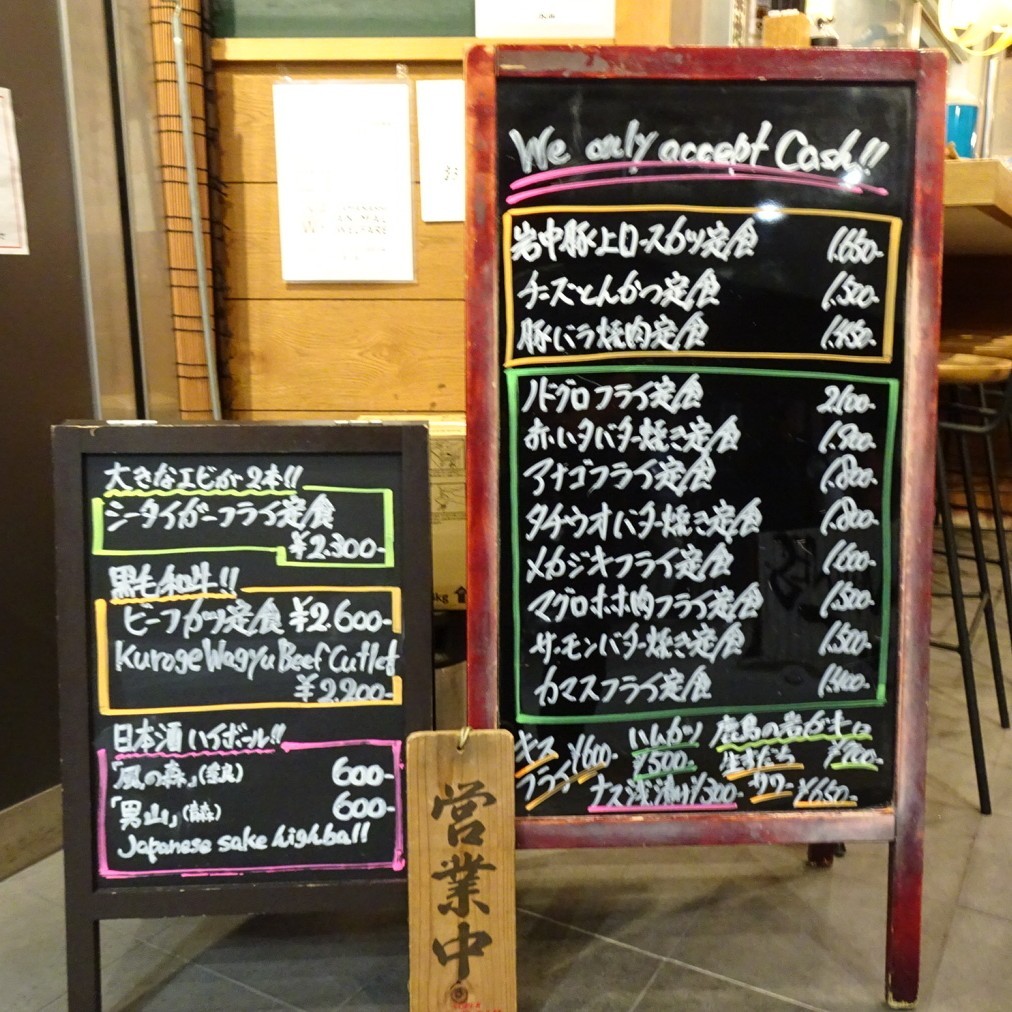 We only accept Cash!!
岩中豚上ロースカツ定食 1,650-
チーズとんかつ定食 1,500-
豚バラ焼肉定食 1,450-
ノドグロフライ定食 2,100-
赤いかバター焼き定食 1,900-
アナゴフライ定食 1,800-
タチウオバター焼き定食 1,800-
メカジキフライ定食 1,600-
マグロホホ肉フライ定食 1,500-
サーモンバター焼き定食 1,500-
カマスフライ定食 1,400-
キスフライ ¥600-
ハムカツ ¥500-
ナス浅漬け ¥300-
生すだちサワー ¥650-
大きなエビが2本!!
シータイガーフライ定食
¥2,300-
黒毛和牛!!
ビーフカツ定食 ¥2,600-
Kuroge Wagyu Beef Cutlet
¥2,200-
日本酒ハイボール!!
「風の森」(奈良) 600-
「男山」 600-
Japanese sake highball
営業中
ANIMAL
WELFARE